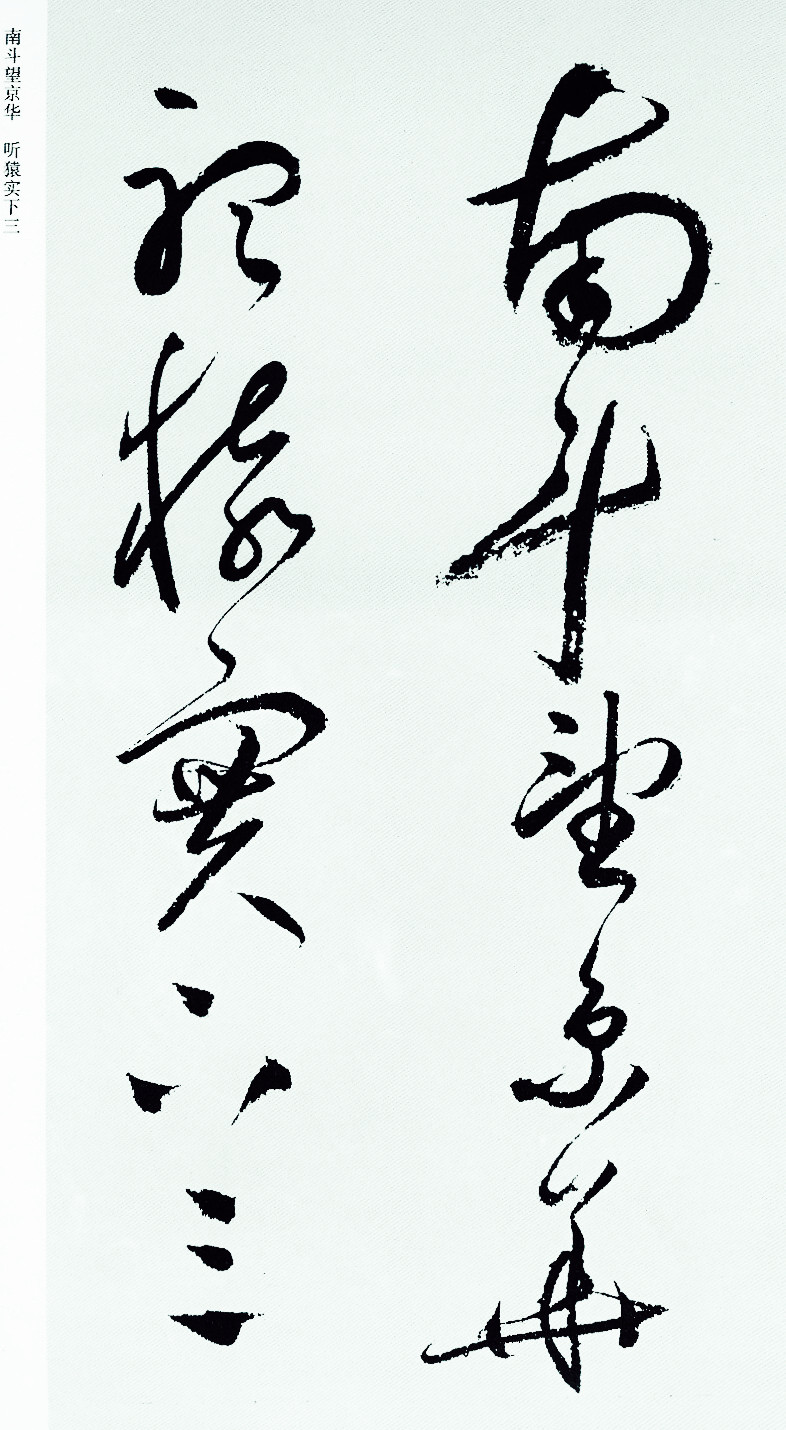 南斗望京華
聽猿實下三
南斗望京华 听猿实下三